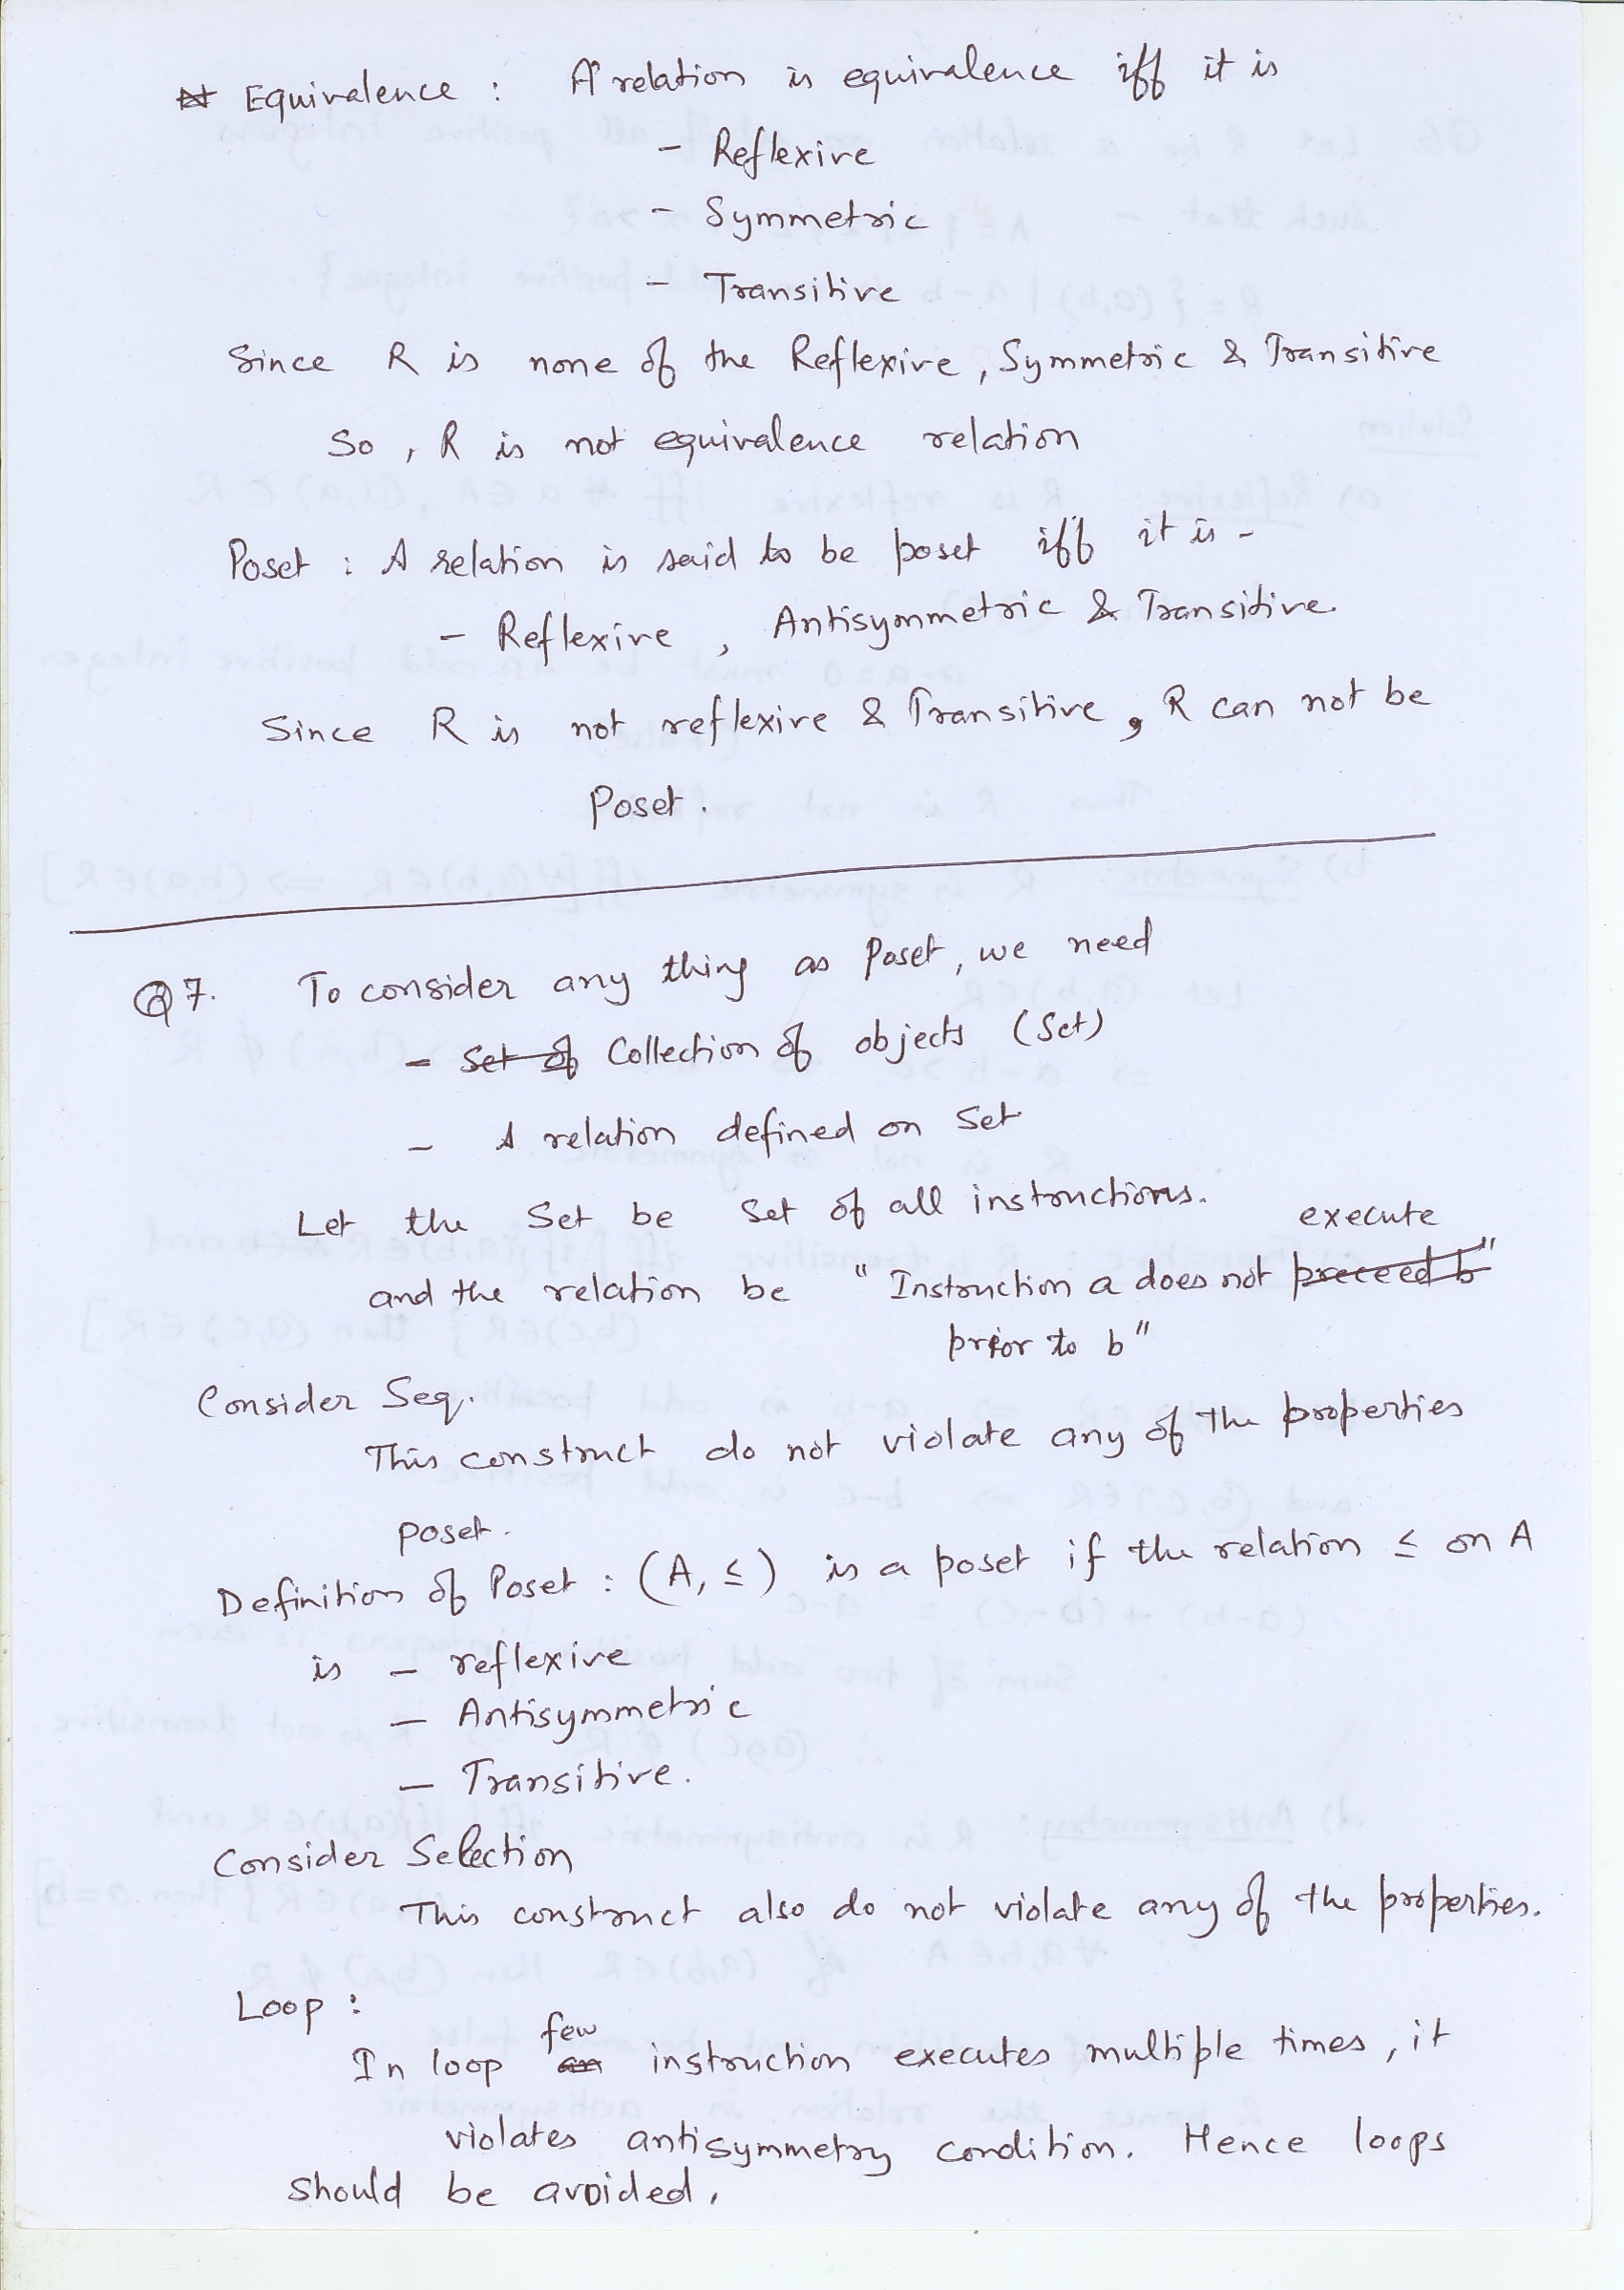 Equivalence : A relation is equivalence iff it is
- Reflexive
- Symmetric
- Transitive
Since R is none of the Reflexive, Symmetric & Transitive
So, R is not equivalence relation
Poset : A relation is said to be poset iff it is -
- Reflexive, Antisymmetric & Transitive.
Since R is not reflexive & Transitive, R can not be
Poset.
Q7. To consider any thing as Poset, we need
- Set of Collection of objects (Set)
- A relation defined on Set
Let the Set be Set of all instructions.
execute
and the relation be " Instruction a does not preceed b"
prior to b"
Consider Seq.
This construct do not violate any of the properties
poset.
Definition of Poset : (A, ≤) is a poset if the relation ≤ on A
is - reflexive
- Antisymmetric
- Transitive.
Consider Selection
This construct also do not violate any of the properties.
Loop :
few
In loop an instruction executes multiple times, it
violates antisymmetry condition. Hence loops
should be avoided.